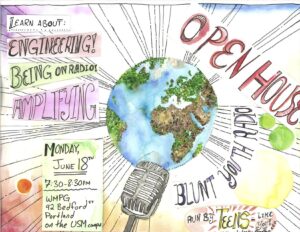 LEARN ABOUT:
ENGINEERING!
BEING ON RADIO!
AMPLIFYING
OPEN HOUSE
BLUNT YOUTH RADIO
MONDAY,
JUNE 18TH
7:30-8:30PM
WMPG
92 BEDFORD ST
Portland
on the USM campus
RUN BY
TEENS:
LIKE